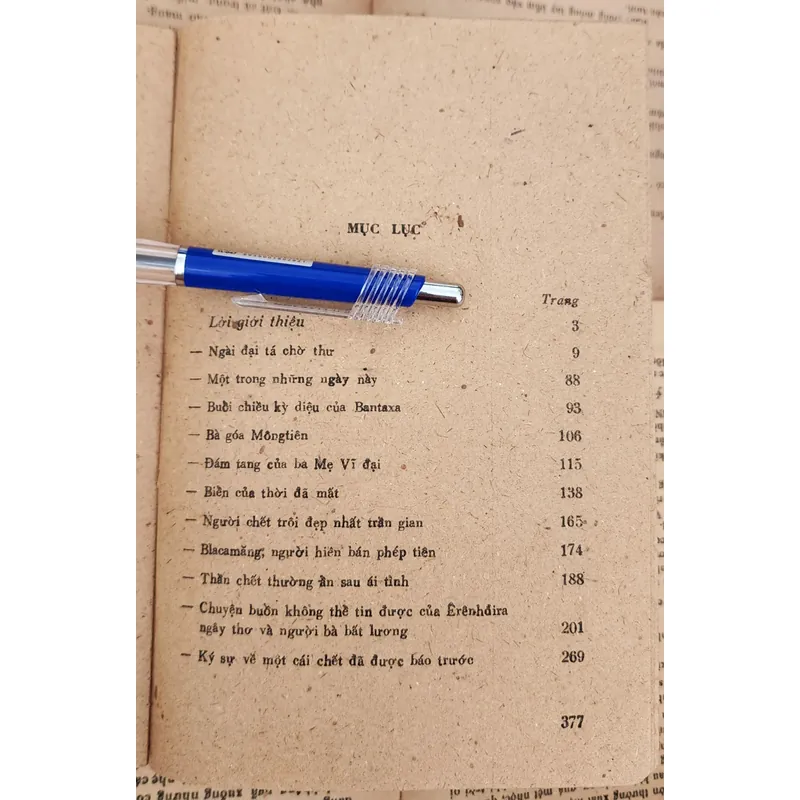 MỤC LỤC
Trang
Lời giới thiệu 3
— Ngài đại tá chờ thư 9
— Một trong những ngày này 88
— Buổi chiều kỳ diệu của Bantaxa 93
— Bà góa Môngtiên 106
— Đám tang của bà Mẹ Vĩ đại 115
— Biển của thời đã mất 138
— Người chết trôi đẹp nhất trần gian 165
— Blacamăng, người hiền bán phép tiên 174
— Thần chết thường ẩn sau ái tình 188
— Chuyện buồn không thể tin được của Êrênhđira
ngây thơ và người bà bất lương 201
— Ký sự về một cái chết đã được báo trước 269
377